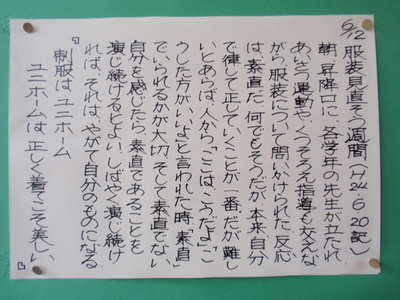 6/12 服装見直そう週間(H24.6.20記)
朝、昇降口に、各学年の先生が立たれ、
あいさつ運動や、くつそろえ指導も交えな
がら、服装について問いかけられた。反応
は、素直だ。何でもそうだが、本来、自分
で律して正していくことが一番だが、難し
いとあらば、人から「ここは、こうだよ」「こ
うした方がいいよ」と言われた時、「素直」
でいられるかが大切。そして素直でない
自分を感じたら、素直であることを
演じ続けるとよい。しばやく演じ続け
れば、それは、やがて自分のものになる。
『制服はユニホーム
ユニホームは、正しく着てこそ美しい』